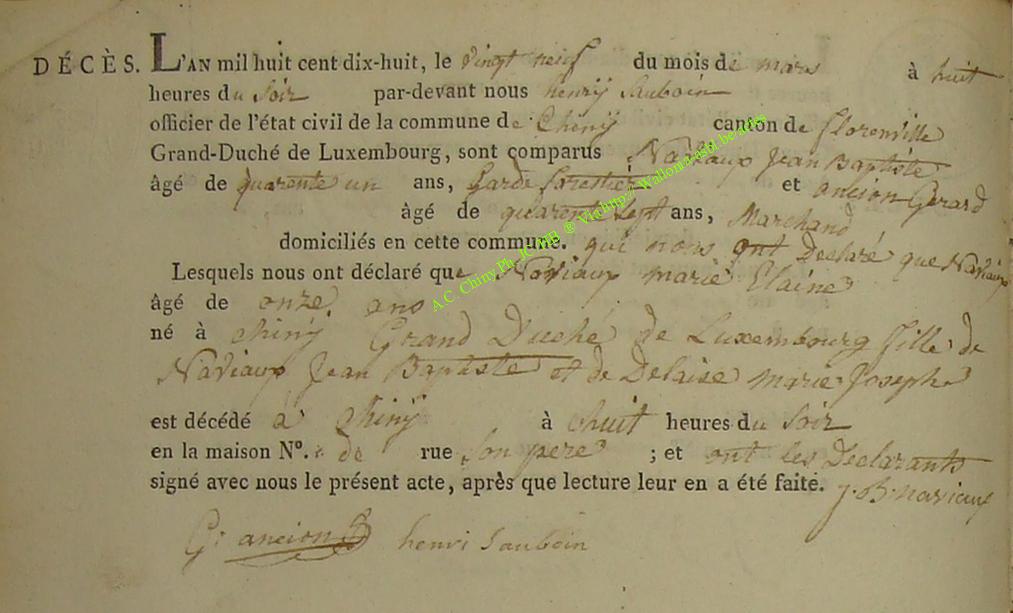 DÉCÈS. L'AN mil huit cent dix-huit, le vingt neuf du mois de mars à huit
heures du Soir par-devant nous henrÿ Sauboin
officier de l'état civil de la commune de Chinÿ canton de florenville
Grand-Duché de Luxembourg, sont comparus Naviaux Jean Baptiste
âgé de quarente un ans, Garde forestier et ancion Gerard
âgé de quarent Sept ans, Marchand
domiciliés en cette commune. qui nous ont Declaré que Naviaux
Lesquels nous ont déclaré que Naviaux marie Elaine
âgé de onze. ans
né à chinÿ Grand Duché de Luxembourg fille de
Naviaux Jean Baptiste et de Delaise marie Joseph
est décédé à Chinÿ à huit heures du Soir
en la maison N°. de rue Son pere ; et ont les Declarants
signé avec nous le présent acte, après que lecture leur en a été faite. J. B. naviaux
G: ancion henri Sauboin
A.C. Chiny Ph. JCHB @ Vichttp://Wallonia-asbl.be